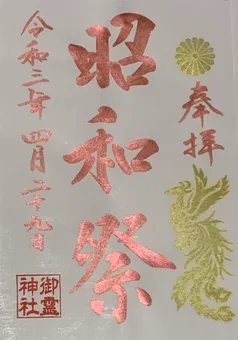 奉拝
昭和祭
令和三年四月二十九日
御霊神社